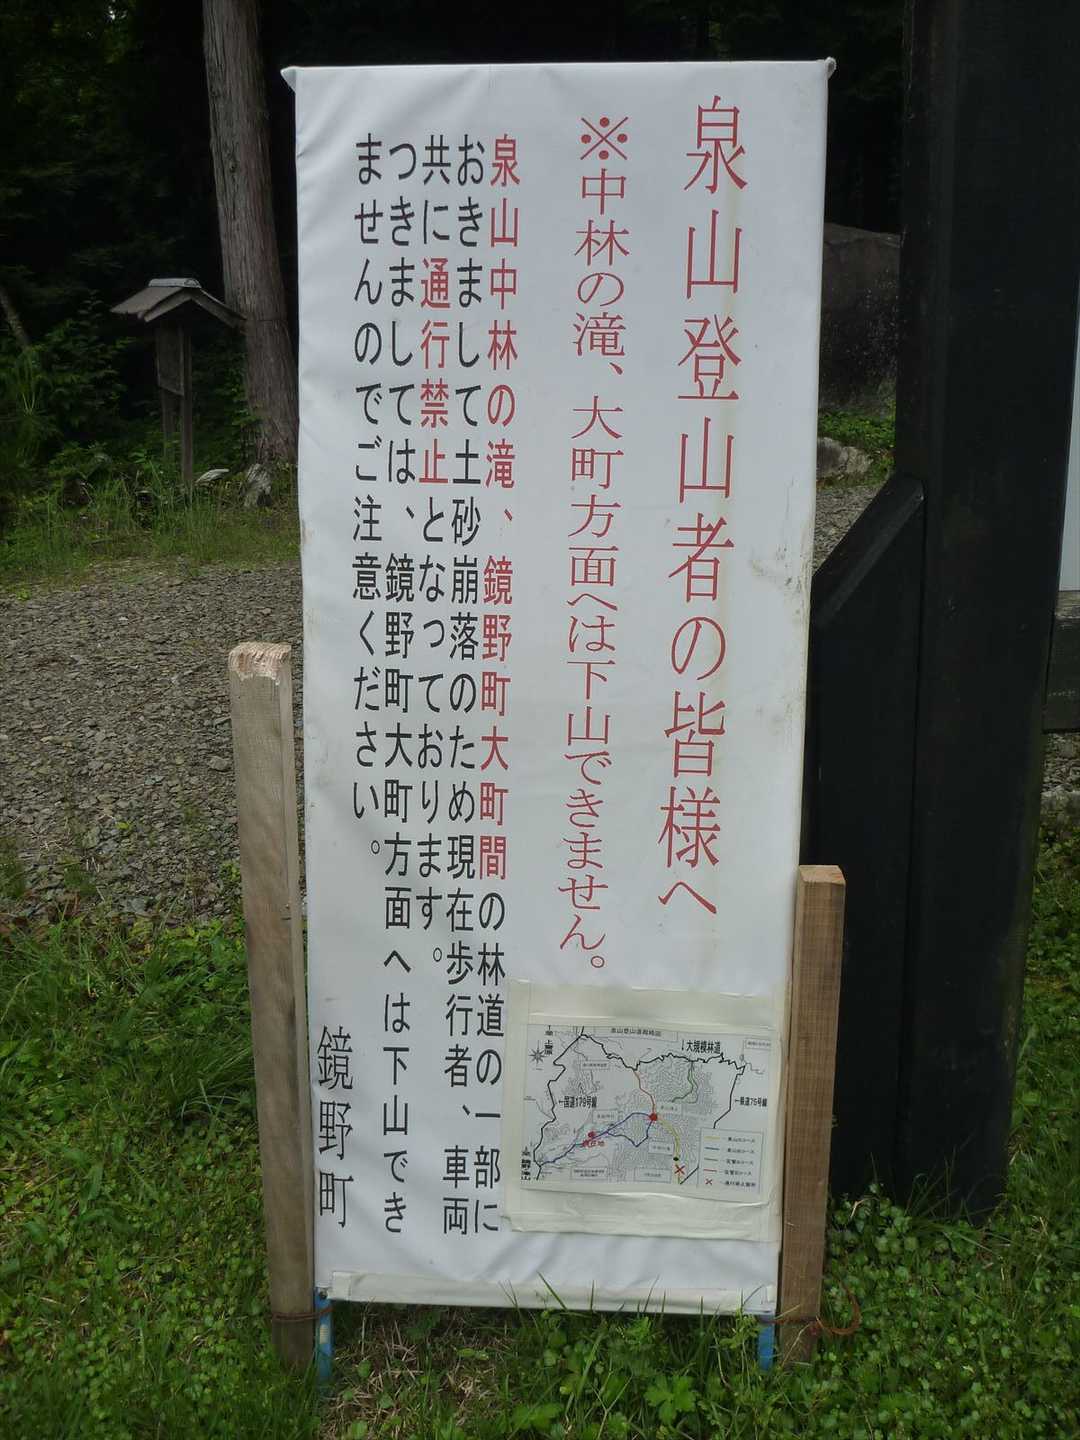 泉山登山者の皆様へ
※中林の滝、大町方面へは下山できません。
泉山中林の滝、鏡野町大町間の林道の一部に
おきまして土砂崩落のため現在歩行者、車両
共に通行禁止となっております。
つきましては、鏡野町大町方面へは下山でき
ませんのでご注意ください。
鏡野町
泉山登山道概略図
↓大規模林道
←国道179号線
←県道75号線
現在地